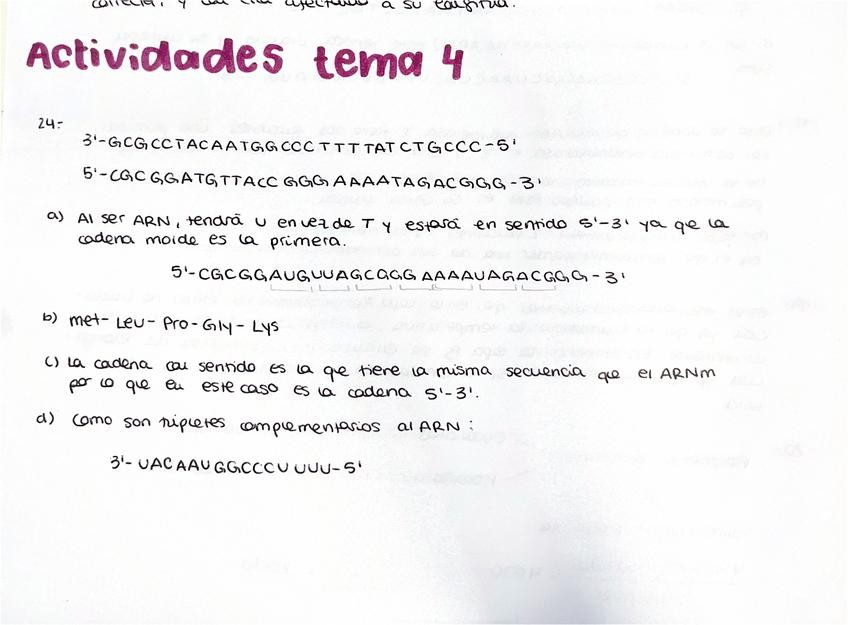 afectado a su
Actividades tema 4
24:-
3'-GCGCCTACAATGGCCC TTTTATCTGCCC-5'
5'-CGCGGATGTTACC GGG AAAATAGACGGG-3'
a) Al ser ARN, tendrá U en vez de T y estará en sentido 5'-3' ya qe la
cadena molde es la primera.
5'-CGCGGAUGUUAGCGGG AAAAUAGACGGG-3'
b) met- Leu- Pro-Gly-Lys
c) La cadena con sentido es la qe tiene la misma secuencia que el ARNm
por lo que en este caso es la cadena 5'-3'.
d) Como son tripletes complementarios al ARN:
3'- UACAAUGGCCCU UUU-5'